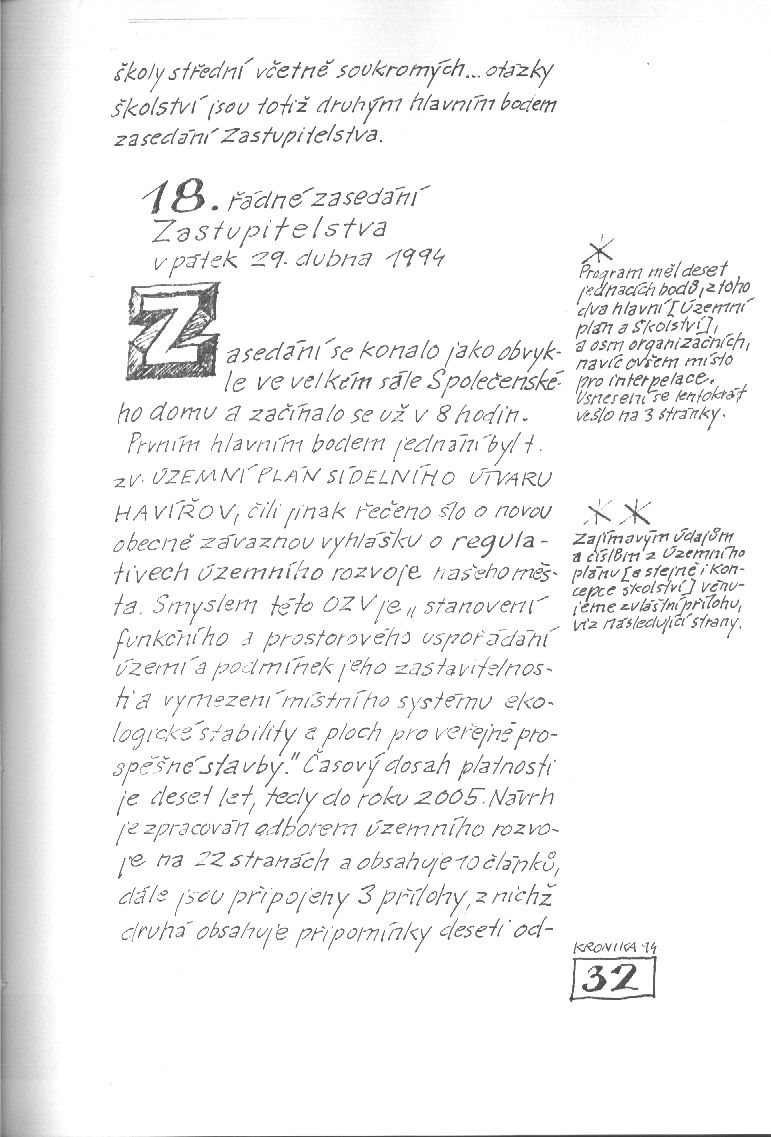 školy střední včetně soukromých... otázky
školství jsou totiž druhým hlavním bodem
zasedání Zastupitelstva.
18. řádné zasedání
Zastupitelstva
v pátek 29. dubna 1994
Zasedání se konalo jako obvyk-
le ve velkém sále Společenské-
ho domu a začínalo se už v 8 hodin.
Prvním hlavním bodem jednání byl t.
zv. ÚZEMNÍ PLÁN SÍDELNÍHO ÚTVARU
HAVÍŘOV, čili jinak řečeno šlo o novou
obecně závaznou vyhlášku o regula-
tivech územního rozvoje našeho měs-
ta. Smyslem této OZV je „stanovení
funkčního a prostorového uspořádání
území a podmínek jeho zastavitelnos-
ti a vymezení místního systému eko-
logické stability a ploch pro veřejně pro-
spěšné stavby." Časový dosah platnosti
je deset let, tedy do roku 2005. Návrh
je zpracován odborem územního rozvo-
je na 22 stranách a obsahuje 10 článků,
dále jsou připojeny 3 přílohy, z nichž
druhá obsahuje připomínky deseti od-
*
Program měl deset
jednacích bodů, z toho
dva hlavní [Územní
plán a školství],
a osm organizačních,
navíc ovšem místo
pro interpelace.
Usnesení se tentokrát
vešlo na 3 stránky.
* *
Zajímavým údajům
a číslům z Územního
plánu [a stejně i kon-
cepce školství] věnu-
jeme zvláštní přílohu,
viz následující strany.
KRONIKA '94
32